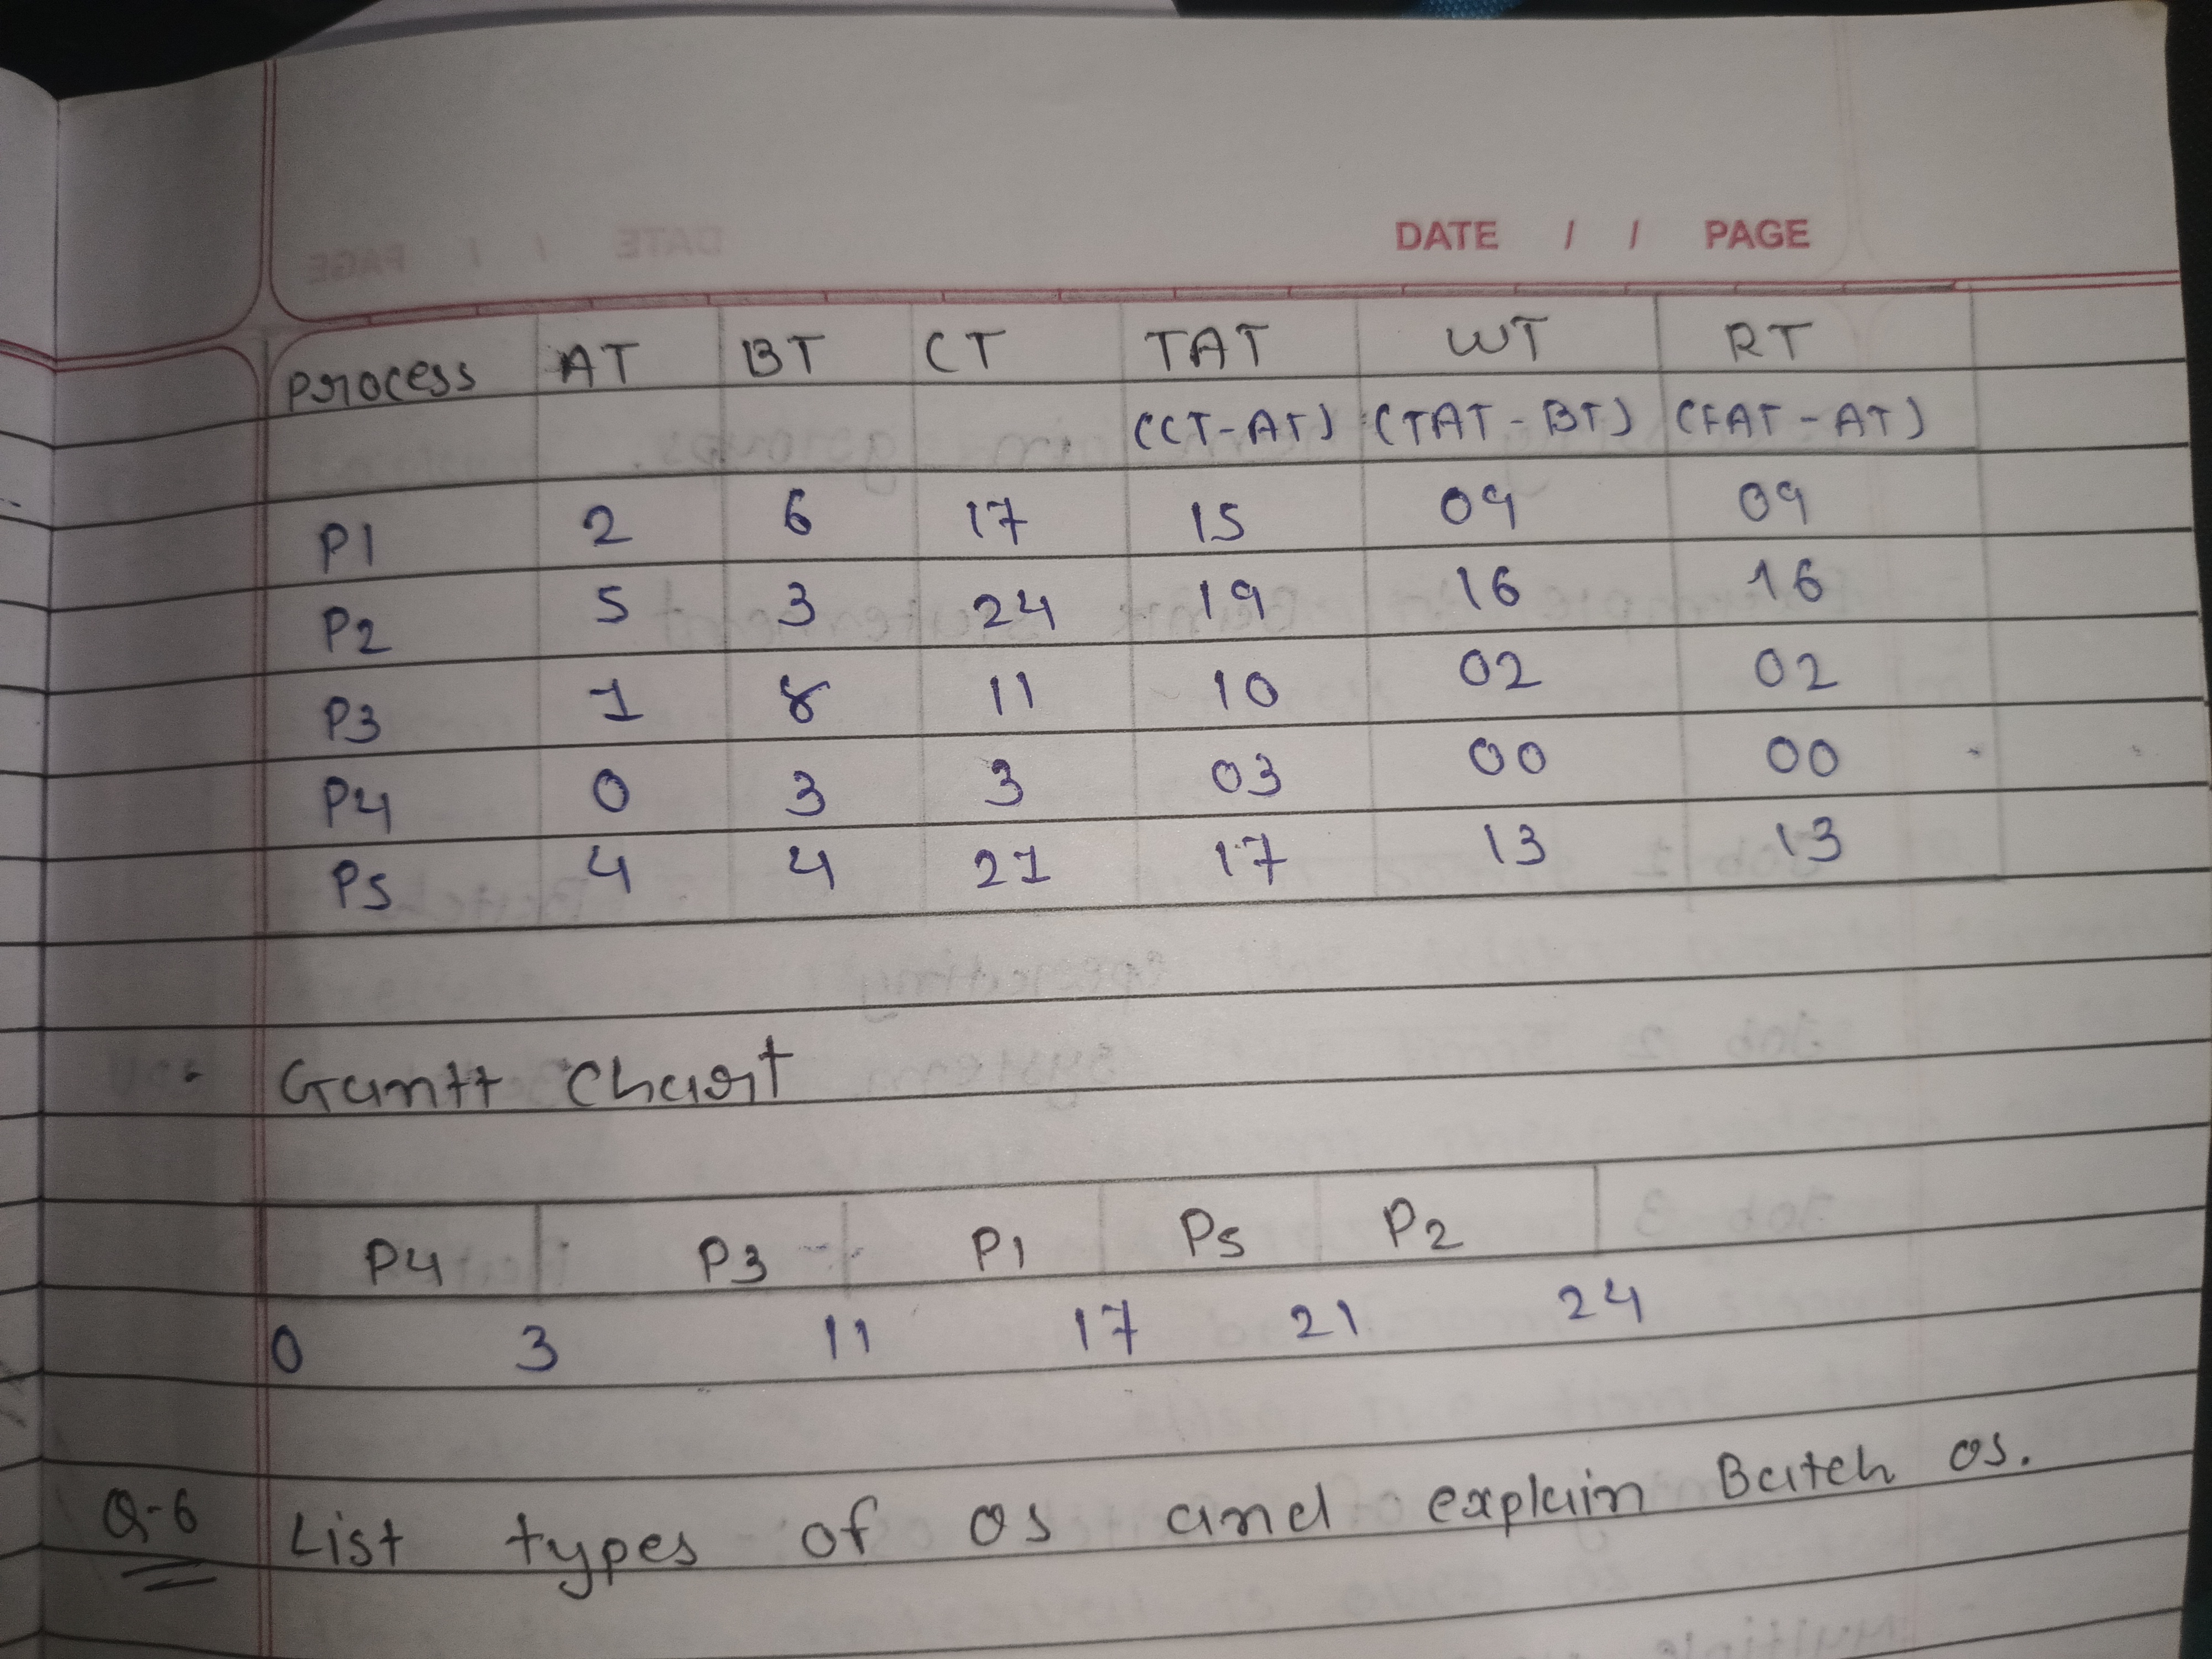 DATE / / PAGE
Process AT BT CT TAT WT RT
(CT-AT) (TAT-BT) (FAT-AT)
P1 2 6 17 15 09 09
P2 5 3 24 19 16 16
P3 1 8 11 10 02 02
P4 0 3 3 03 00 00
P5 4 4 21 17 13 13
Gantt Chart
P4 P3 P1 P5 P2
0 3 11 17 21 24
Q-6 List types of OS and explain Batch OS.